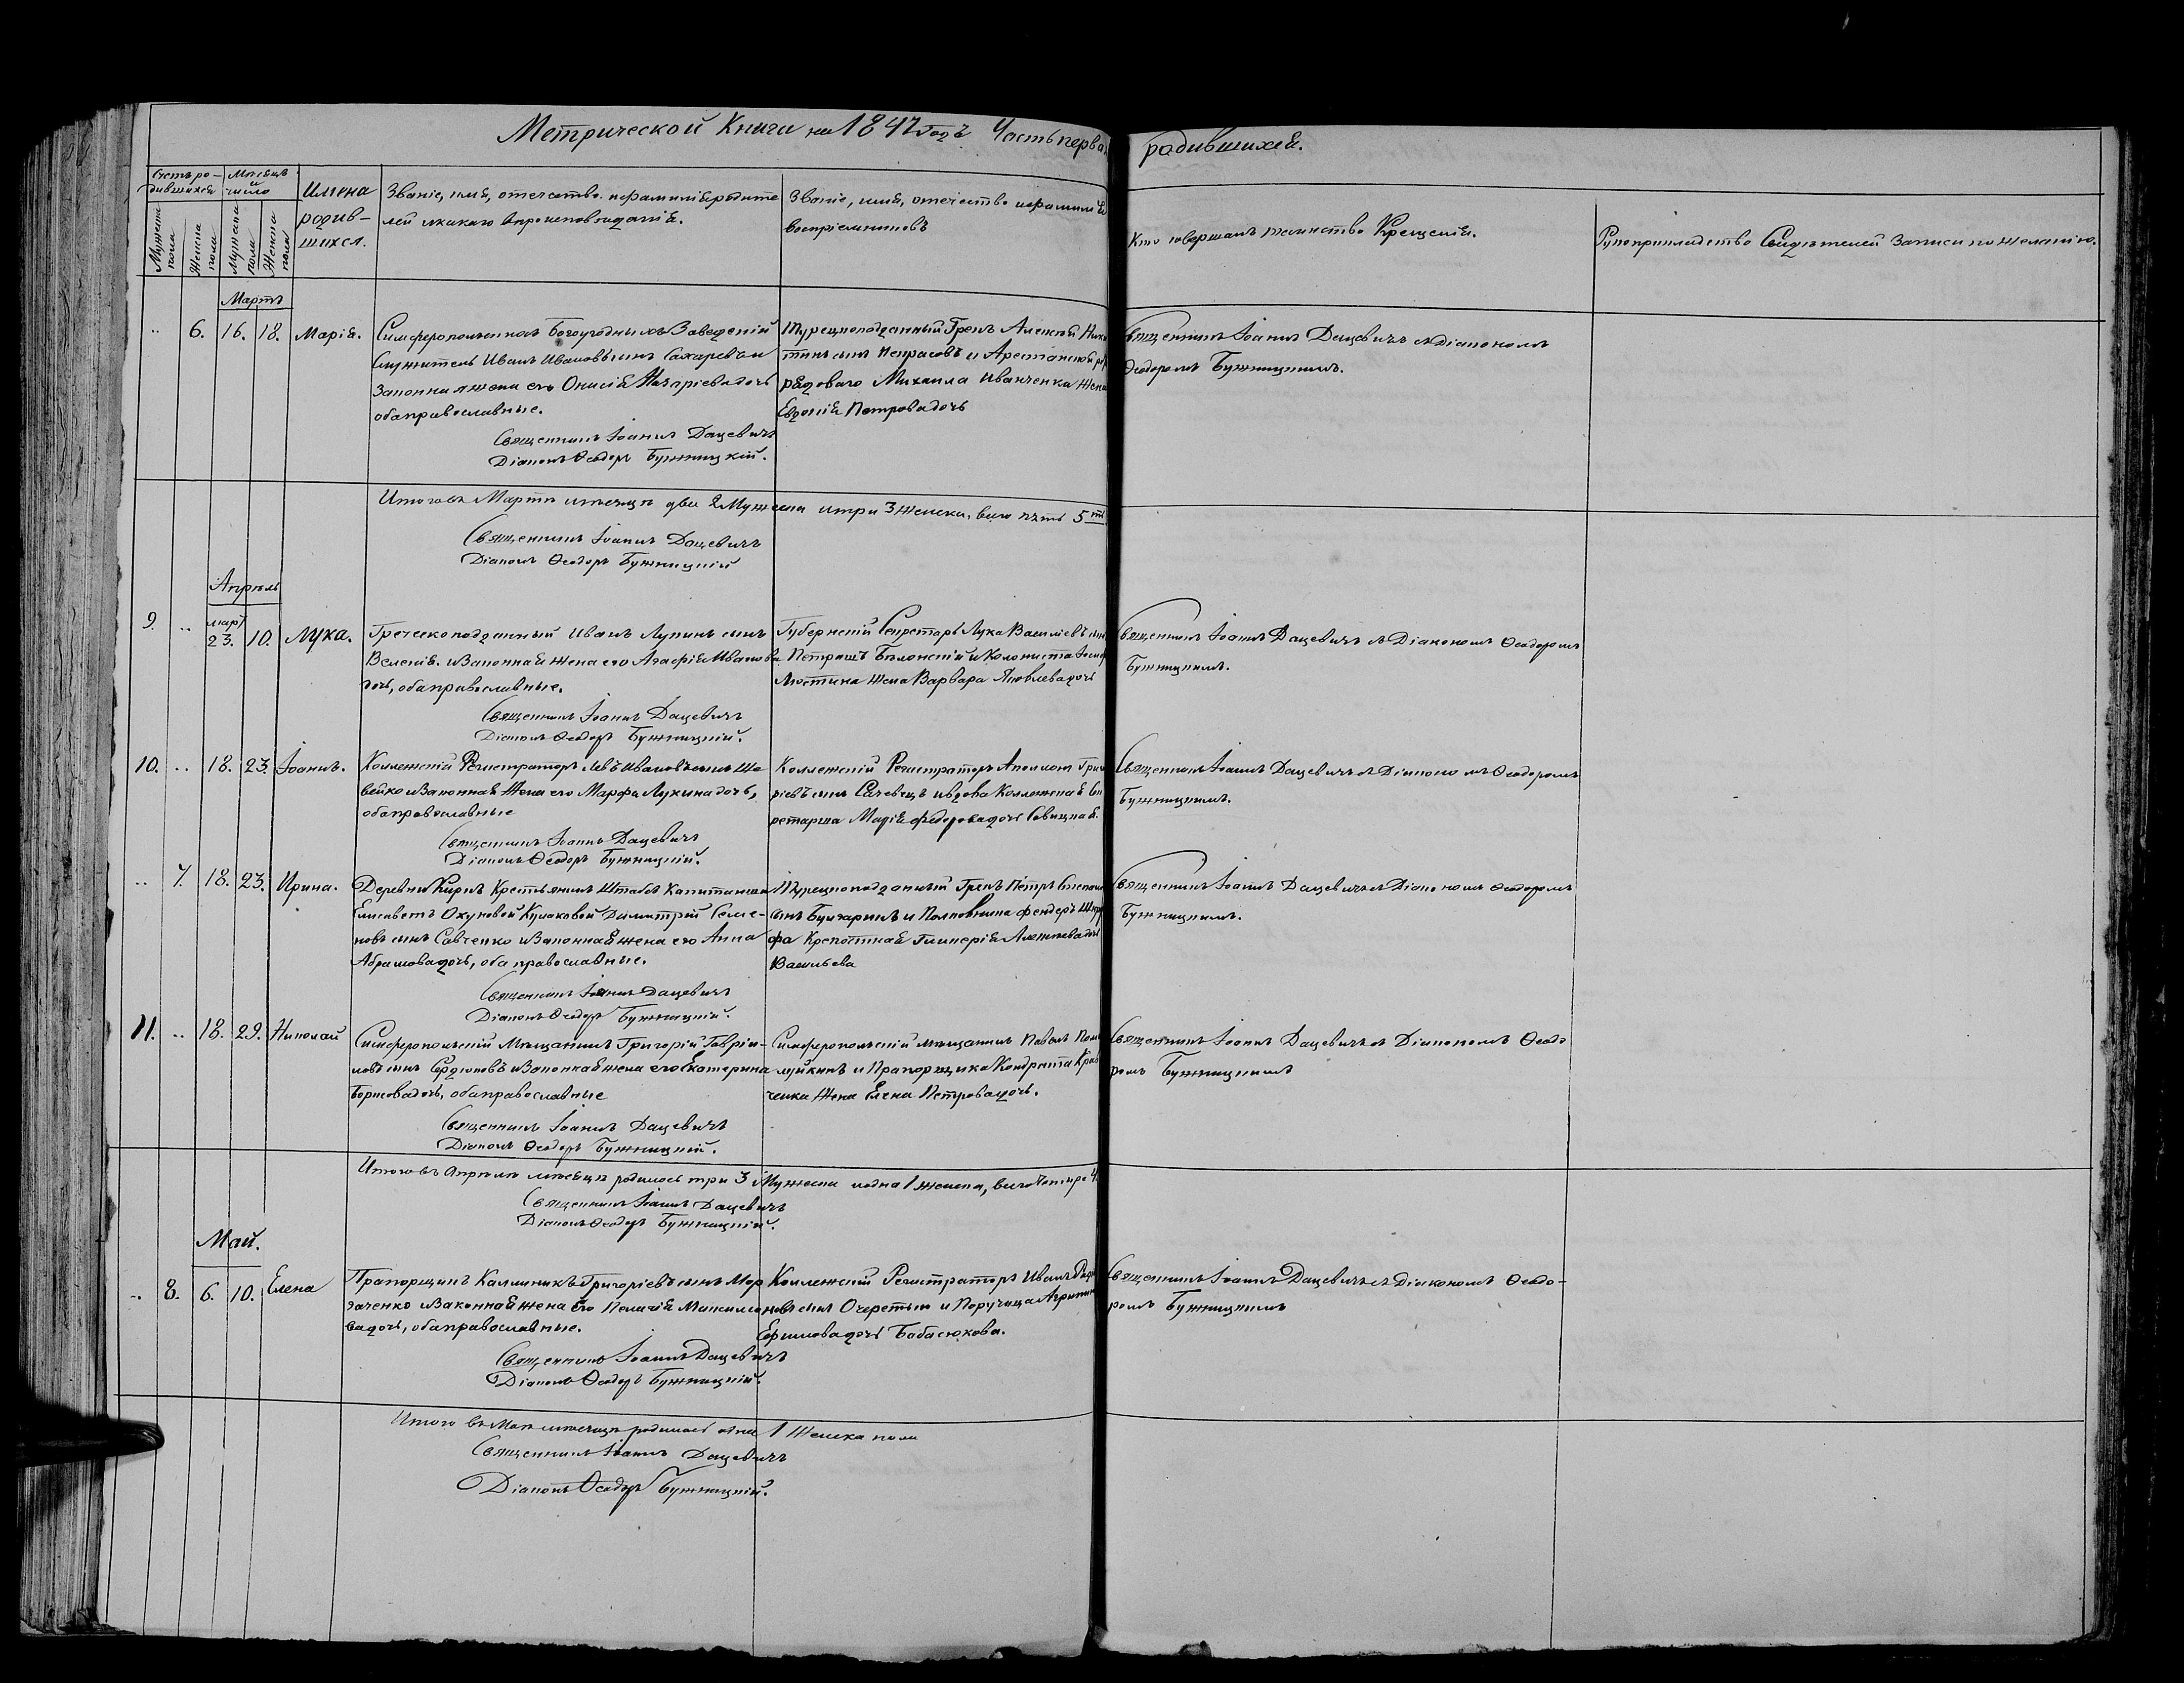 Метрической Книги на 1847 годъ Часть первая
родившихся.
Счетъ ро-
дившихся
Мѣсяцъ
и
число
Мужеска
пола
Женска
пола
Мужеска
пола
Женска
пола
Имена
родив-
шихся.
Званіе, имя, отечество и фамилія родите
лей и какого вѣроисповѣданія.
Званіе, имя, отечество и фамилія
воспріемниковъ
Кто совершалъ таинство Крещенія.
Рукоприкладство Свидѣтелей Записи по желанію.
Мартъ
6. 16. 18. Марія.
Симферопольскихъ Богоугодныхъ Заведеній
Служитель Иванъ Ивановъ сынъ Сахаревъ и
Законная жена его Онисія Назаріева дочь
оба православные.
Священникъ Іоаннъ Дацевичъ
Діаконъ Ѳеодоръ Бужницкій.
Турецкоподданный Грекъ Алексѣй Ники
тинъ сынъ Некрасовъ и Арестанской
рядоваго Михаила Иванченка жена
Евдокія Петрова дочь
Священникъ Іоаннъ Дацевичъ съ Діакономъ
Ѳеодоромъ Бужницкимъ.
Итого въ Мартѣ мѣсяцѣ два 2 Мужеска и три 3 женска, всего пять 5ть
Священникъ Іоаннъ Дацевичъ
Діаконъ Ѳеодоръ Бужницкій
Апрѣль
9. март 23. 10. Лука.
Греческоподданный Иванъ Лукинъ сынъ
Веленія. и Законная жена его Агафія Иванова
дочь, оба православные.
Священникъ Іоаннъ Дацевичъ
Діаконъ Ѳеодоръ Бужницкій.
Губернскій Секретарь Лука Василіевъ сынъ
Петрашъ Бѣлонскій и Колониста Іосифа
Мостина жена Варвара Яковлева дочь
Священникъ Іоаннъ Дацевичъ съ Діакономъ Ѳеодоромъ
Бужницкимъ.
10. 18. 23. Іоаннъ.
Коллежскій Регистраторъ Левъ Ивановъ сынъ Ша
вейко и Законная Жена его Марфа Лукина дочь,
оба православные
Священникъ Іоаннъ Дацевичъ
Діаконъ Ѳеодоръ Бужницкій.
Коллежскій Регистраторъ Аполлонъ Григо
ріевъ сынъ Сачевецъ и вдова Коллежская Се
кретарша Марія Федорова дочь Савицкая.
Священникъ Іоаннъ Дацевичъ съ Діакономъ Ѳеодоромъ
Бужницкимъ.
7. 18. 23. Ирина.
Деревни Киркъ Крестьянинъ Штабсъ Капитанши
Елисаветъ Окуневой Кулаковой Димитрій Семе-
новъ сынъ Савченко и Законная жена его Анна
Абрамова дочь, оба православные.
Священникъ Іоаннъ Дацевичъ
Діаконъ Ѳеодоръ Бужницкій.
Турецкоподданный Грекъ Петръ Степановъ
сынъ Булгаринъ и Полковника Фендеръ
фа Крепостная Гликерія Алексѣева дочь
Васильева
Священникъ Іоаннъ Дацевичъ съ Діакономъ Ѳеодоромъ
Бужницкимъ.
11. 18. 29. Николай
Симферопольскій Мѣщанинъ Григорій Гавріи-
ловъ сынъ Сердюковъ и Законная жена его Екатерина
Борисова дочь, оба православные
Священникъ Іоаннъ Дацевичъ
Діаконъ Ѳеодоръ Бужницкій.
Симферопольскій мѣщанинъ Павелъ
луйкинъ и Прапорщика Кондрата Крав
ченка Жена Елена Петрова дочь.
Священникъ Іоаннъ Дацевичъ съ Діакономъ Ѳеодо
ромъ Бужницкимъ
Итого въ Апрѣлѣ мѣсяцѣ родилось три 3 Мужеска и одна 1 женска, всего четыре 4.
Священникъ Іоаннъ Дацевичъ
Діаконъ Ѳеодоръ Бужницкій.
Май.
8. 6. 10. Елена
Прапорщикъ Каллиникъ Григоріевъ сынъ Мор
заченко и Законная жена Его Пелагія Максимо
ва дочь, оба православные.
Священникъ Іоаннъ Дацевичъ
Діаконъ Ѳеодоръ Бужницкій.
Коллежскій Регистраторъ Иванъ
новъ сынъ Очеретько и Поручица Агрипина
Ефимова дочь Бабасюкова.
Священникъ Іоаннъ Дацевичъ съ Діакономъ Ѳеодо-
ромъ Бужницкимъ
Итого въ Маѣ мѣсяцѣ родилось одна 1 Женска пола
Священникъ Іоаннъ Дацевичъ
Діаконъ Ѳеодоръ Бужницкій.